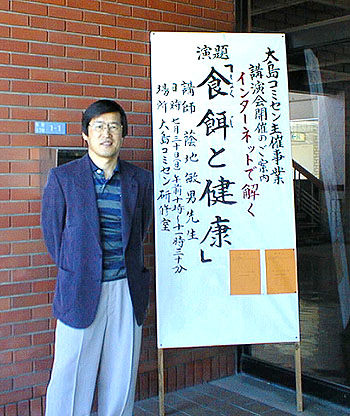 大島コミセン主催事業
講演会開催のご案内
インターネットで解く
演題
「食餌と健康」
講師 蔭地敏男先生
日時 七月二十日(金)午前十時~十一時三十分
場所 大島コミセン研修室